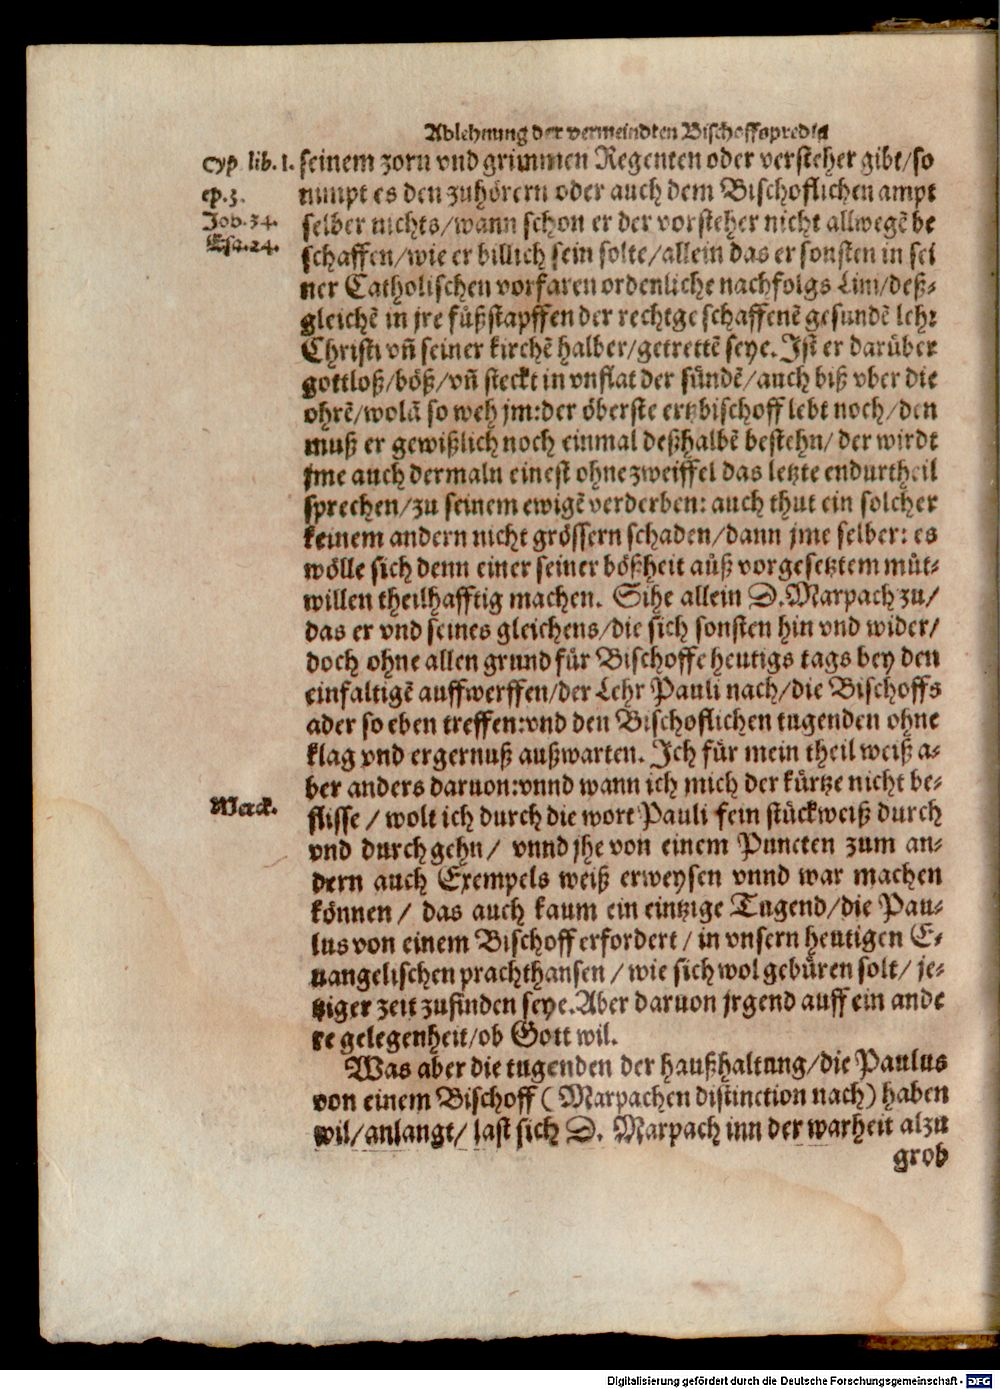 Ablehnung der vermeindten Bischoffspredig
Cyp. lib. 1.
ep. 3.
Job. 34.
Esa. 24.
seinem zorn vnd grimmen Regenten oder versteher gibt/so
nimpt es den zuhörern oder auch dem Bischoflichen ampt
selber nichts/wann schon er der vorsteher nicht allwegẽ be
schaffen/wie er billich sein solte/allein das er sonsten in sei
ner Catholischen vorfaren ordenliche nachfolgs Lini/deß-
gleichẽ in jre fůßstapffen der rechtgeschaffenẽ gesundẽ lehr
Christi vñ seiner kirchẽ halber/getrettẽ seye. Jst er darüber
gottloß/bőß/vñ steckt in vnflat der sündẽ/auch biß vber die
ohrẽ/wolã so weh jm:der őberste ertzbischoff lebt noch/den
muß er gewißlich noch einmal deßhalbẽ bestehn/ der wirdt
jme auch dermaln einest ohne zweiffel das letzte endurtheil
sprechen/zu seinem ewigẽ verderben: auch thut ein solcher
keinem andern nicht grössern schaden/dann jme selber: es
wőlle sich denn einer seiner bőßheit aůß vorgesetztem můt-
willen theilhafftig machen. Sihe allein D. Marpach zu/
das er vnd seines gleichens/die sich sonsten hin vnd wider/
doch ohne allen grund fůr Bischoffe heutigs tags bey den
einfaltigẽ auffwerffen/der Lehr Pauli nach/die Bischoffs
ader so eben treffen:vnd den Bischoflichen tugenden ohne
klag vnd ergernuß außwarten. Jch fůr mein theil weiß a-
ber anders daruon:vnnd wann ich mich der kůrtze nicht be-
Merck.
flisse / wolt ich durch die wort Pauli fein stůckweiß durch
vnd durch gehn/ vnnd jhe von einem Puncten zum an-
dern auch Exempels weiß erweysen vnnd war machen
kőnnen / das auch kaum ein eintzige Tugend/die Pau-
lus von einem Bischoff erfordert / in vnsern heutigen E-
uangelischen prachthansen / wie sich wol gebůren solt/ je-
tziger zeit zufinden seye. Aber daruon jrgend auff ein ande
re gelegenheit/ob Gott wil.
Was aber die tugenden der haußhaltung/die Paulus
von einem Bischoff ( Marpachen distinction nach) haben
wil/anlangt/ last sich D. Marpach inn der warheit alzu
grob
Digitalisierung gefördert durch die Deutsche Forschungsgemeinschaft - DFG